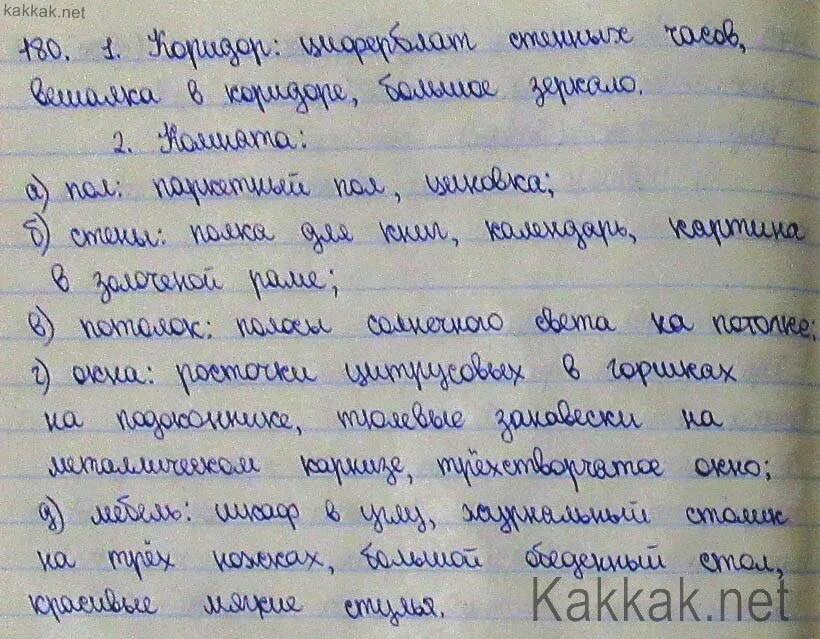 kakkak.net
180. 1. Коридор: циферблат стенных часов,
вешалка в коридоре, большое зеркало.
2. Комната:
а) пол: паркетный пол, циновка;
б) стены: полка для книг, календарь, картина
в золоченой раме;
в) потолок: полосы солнечного света на потолке;
г) окна: росточки цитрусовых в горшках
на подоконнике, тюлевые занавески на
металлическом карнизе, трёхстворчатое окно;
д) мебель: шкаф в углу, журнальный столик
на трёх ножках, большой обеденный стол,
красивые мягкие стулья.
Kakkak.net